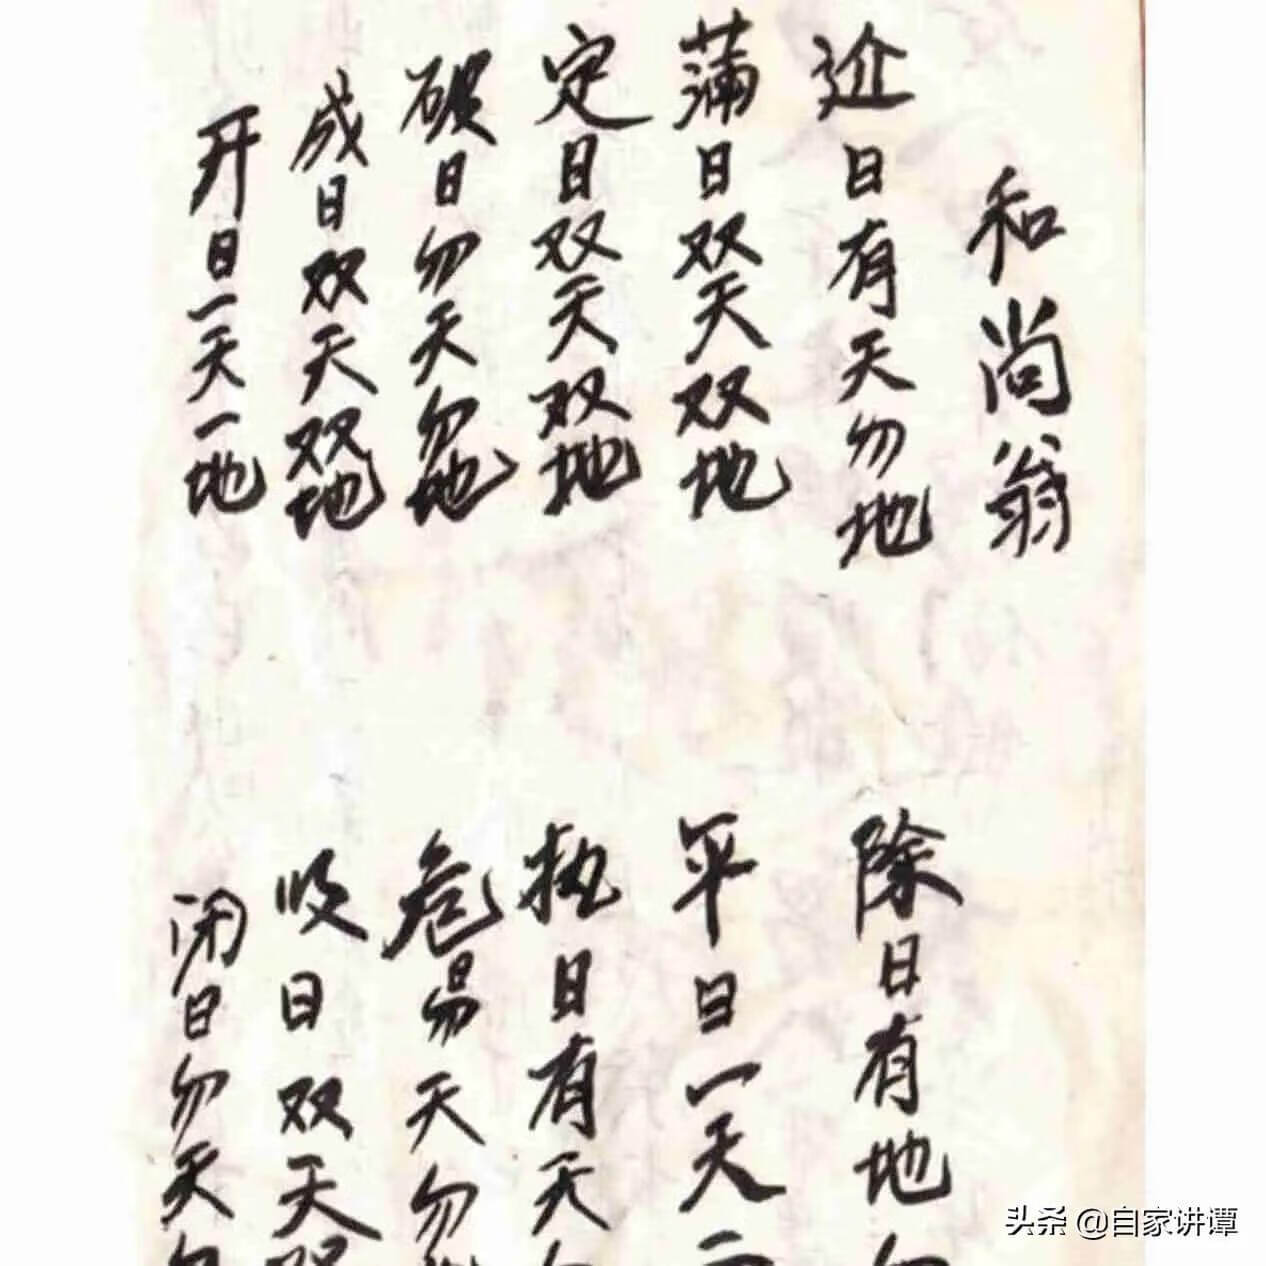 和尚翁
近日有天勿地
蒲日双天双地
定日双天双地
破日勿天勿地
成日双天双地
开日一天一地
除日有地勿
平日一天二
执日有天勿
危日勿天勿地
收日双天双
闭日勿天勿
头条 @自家讲谭